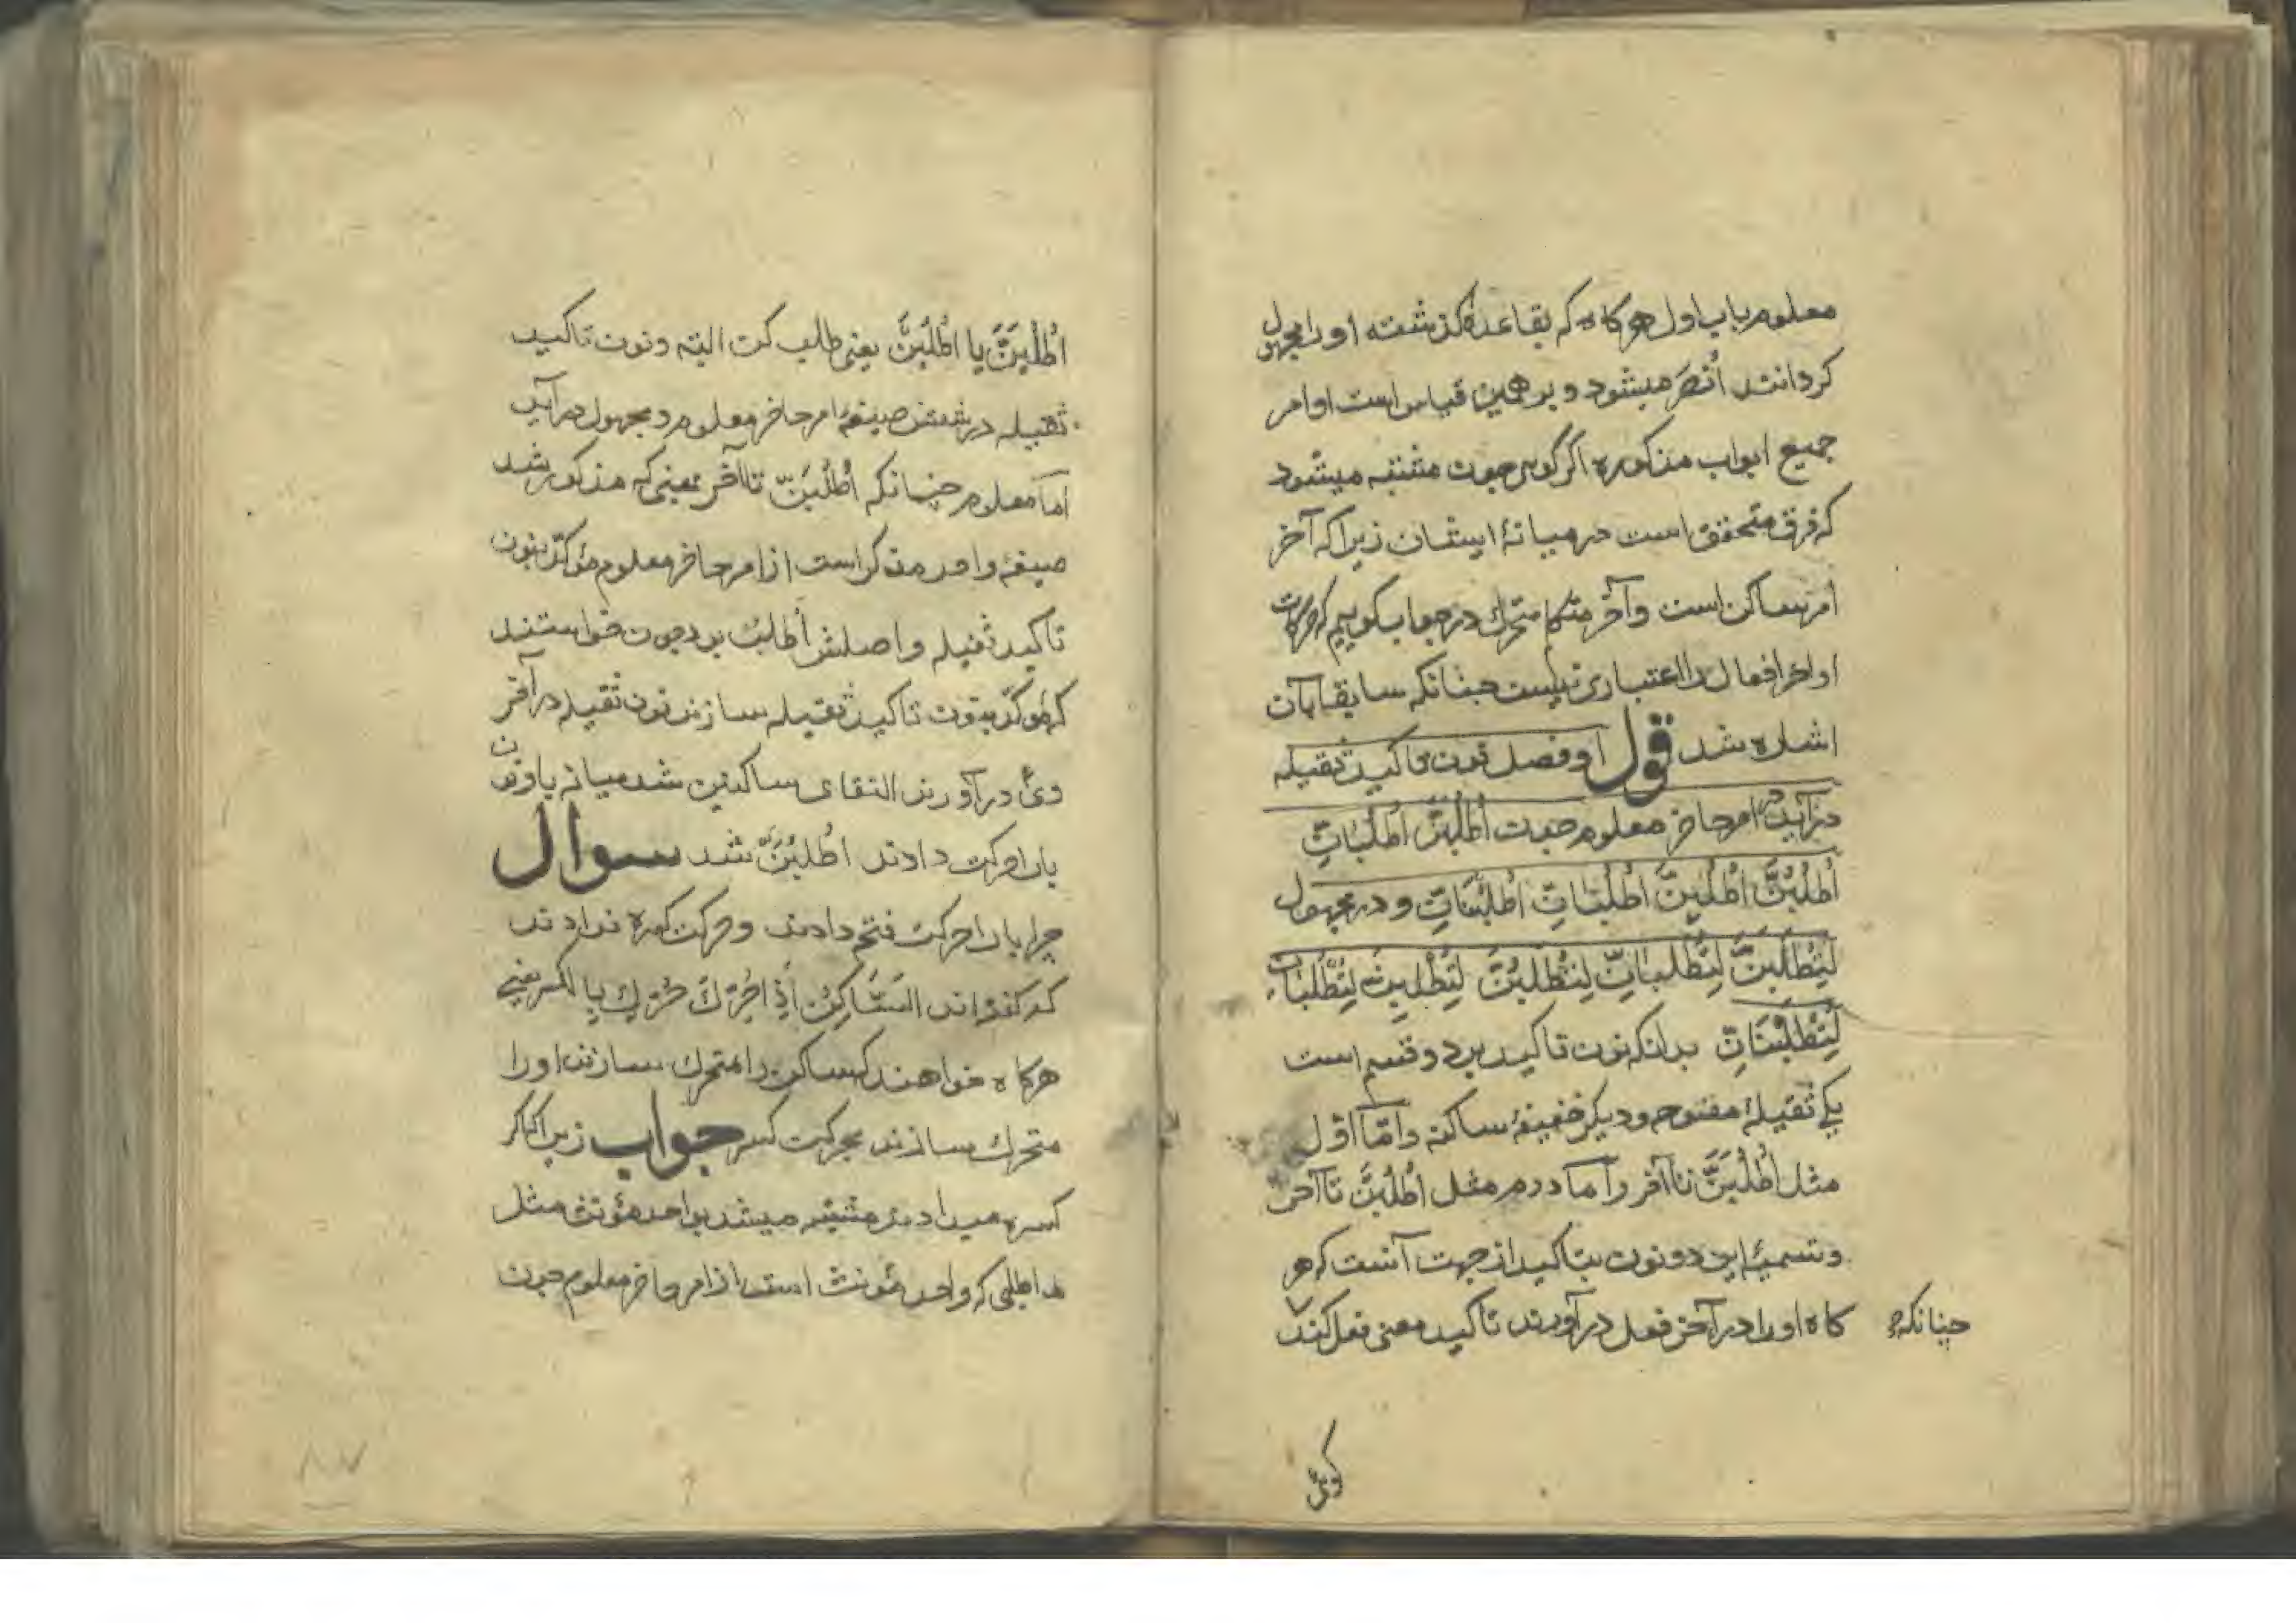 معلوم باب اول هرکاه که بقاعدهٔ کذشته او را مجهول
کردانند اُنْصَرْ میشود و بر همین قیاس است اوامر
جمیع ابواب مذکوره اکر کویی چون مشتبه میشود
که فرق متحقق است در میانهٔ ایشان زیرا که آخر
امر ساکن است و آخر متکلم متحرک در جواب کوییم که حرکات
اواخر افعال را اعتباری نیست چنانکه سابقا بآن
اشاره شد قوله او فصل نون تاکید ثقیله
در آید در امر حاضر معلوم چون اُطْلُبَنَّ اُطْلُبَانِّ
اُطْلُبُنَّ اُطْلُبِنَّ اُطْلُبَانِّ اُطْلُبْنَانِّ و در مجهول
لِتُطْلَبَنَّ لِتُطْلَبَانِّ لِتُطْلَبُنَّ لِتُطْلَبِنَّ لِتُطْلَبَانِّ
لِتُطْلَبْنَانِّ بدانکه نون تاکید بر دو قسم است
یکی ثقیلهٔ مفتوحه و دیکر خفیفهٔ ساکنه و امّا اوّل
مثل اُطْلُبَنَّ تا آخر و اما دوم مثل اُطْلُبَنْ تا آخر
و تسمیهٔ این دو نون بتاکید از جهت آنست که هر
کاه او را در آخر فعل در آورند تاکید معنی فعل کند
چنانکه
کوئی
اُطْلُبَنَّ یا اُطْلُبَنْ یعنی طلب کن البته و نون تاکید
ثقیله در شش صیغهٔ امر حاضر معلوم و مجهول در آید
اما معلوم چنانکه اُطْلُبَنَّ تا آخر بمعنی که مذکور شد
صیغهٔ واحد مذکر است از امر حاضر معلوم مؤکّد بنون
تاکید ثقیله و اصلش اُطْلُبْ بود چون خواستند
که مؤکّد بنون تاکید ثقیله سازند نون ثقیله در آخر
وی در آورند التقای ساکنین شد میانه با و نون
با را حرکت دادند اُطْلُبَنَّ شد سوال
چرا با را حرکت فتح دادند و حرکت کسره ندادند
که کفته اند السَّاکِنُ اِذَا حُرِّكَ حُرِّكَ بالکسر یعنی
هرکاه خواهند که ساکن را متحرک سازند او را
متحرک سازند بحرکت کسر جواب زیرا که اکر
کسره میدادند مشتبه میشد بواحد مؤنث مثل
اطلبی که واحد مؤنث است از امر حاضر معلوم چون